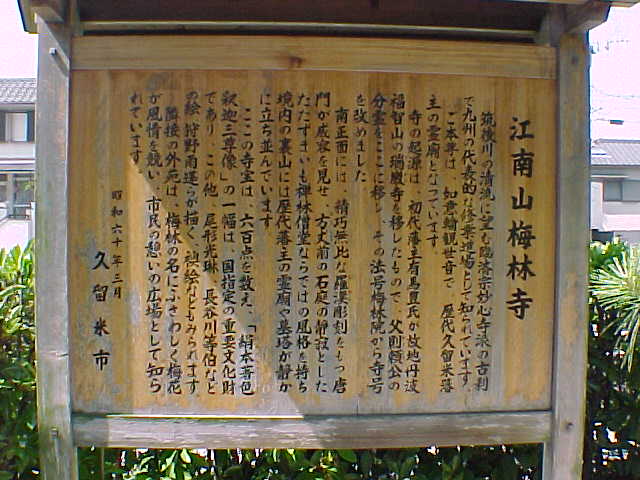 江南山梅林寺
筑後川の清流に望む臨済宗妙心寺派の古刹
で九州の代表的な修業道場として知られています。
ご本尊は、如意輪観世音で、歴代久留米藩
主の霊廟となっています。
寺の起源は、初代藩主有馬豊氏が故地丹波
福智山の瑞巌寺を移したもので、父則頼公の
分霊をここに移し、その法号梅林院から寺号
を改めました。
南正面には、精巧無比な羅漢彫刻をもつ唐
門が威容を見せ、方丈前の石庭の静寂とした
たたずまいも禅林僧堂ならではの風格を持ち
境内の裏山には歴代藩主の霊廟や墓塔が静か
に立ち並んでいます。
ここの寺宝は、六百点を数え、「絹本著色
釈迦三尊像」の一幅は、国指定の重要文化財
であり、この他、尾形光琳、長谷川等伯など
の絵、狩野雨運らが描く、袖絵などもみられます。
隣接の外苑は、梅林の名にふさわしく梅花
が風情を競い、市民の憩いの広場として知ら
れています。
昭和六十年三月
久留米市